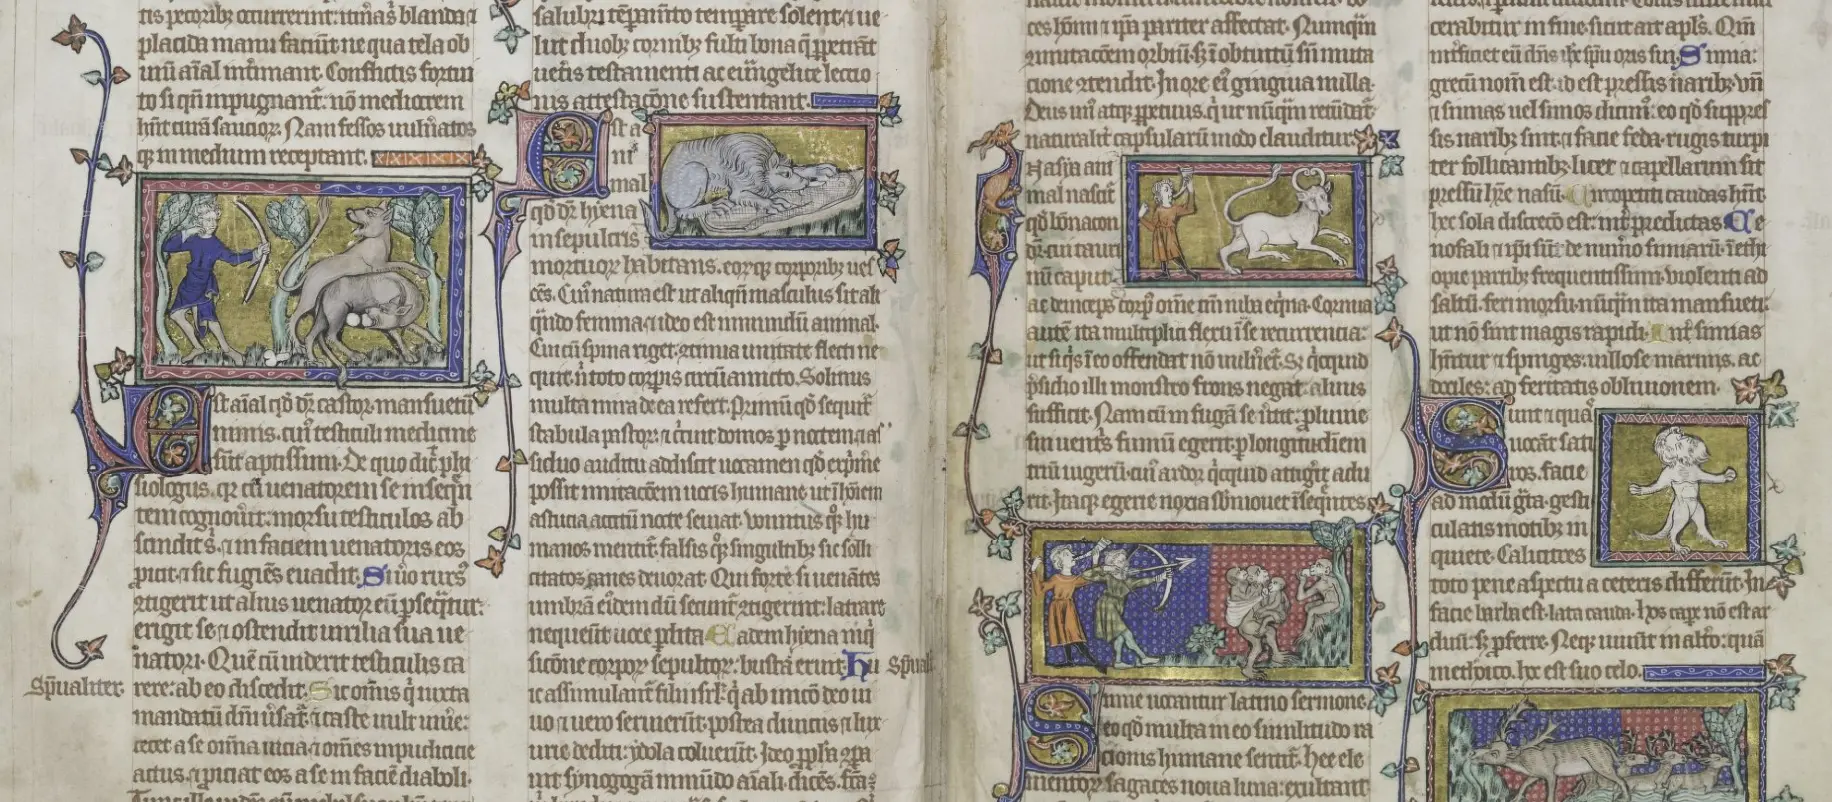 placida manu faciunt ne qua tela ob
unū aīal intimant. Conflictis fortui
to si qn̄ inpugnant: nō mediocrem
hn̄t curā saucioꝝ. Nam fessos uuln̄atos
qꝫ in medium receptant.
Est aīal qd̄ dr̄ castor. mansuetū
nimis. cui᷒ testiculi medicine
sūt aptissimi. De quo dic̄ phi
siologus. qꝛ cū uenatorem se inseqn̄
tem cognou̾it: morsu testiculos ab
scindit s̾. ⁊ in faciem uenatoris eos
ꝓicit. ⁊ sic fugiēs euadit. Si u̾o rurs᷒
9tigerit ut alius uenator eū ꝑseqt̄ur:
erigit se ⁊ ostendit uirilia sua ue
natori. Que cū uiderit testiculis ca
rere: ab eo discedit. Sic om̄is q̇ iuxta
mandatū dn̄i u̾sat̄ ⁊ caste uult uiu̾e:
secet a se om̄ia uicia ⁊ om̄es inpudicicie
actus. ⁊ ꝓiciat eos a se in faciē diaboli.
Sp̄ualiter.
lut duobꝫ cornibꝫ fulti bona q̄ ꝑpetrāt
uet̾is testamenti ac eūngelice lectio
nis attestac̄one sustentant.
Est a
nī
mal
qd̄ dr̄ hyena
in sepulcris
mortuoꝝ habitans. eorqꝫ corporibꝫ ues
cēs. Cui᷒ natura est ut aliqn̄ masculus sit ali
qn̄do femina. ⁊ ideo est inmundū animal.
Cui cū spina riget. 9tinua unitate flecti ne
quit. n̄ toto corꝑis circūanncto. Solinus
multa mira de ea refert. Primū qd̄ sequit̄
stabula pastoꝝ: ⁊ circuit domos ꝑ noctem. ⁊ as
siduo auditu addiscit uocamen qd̄ exp̄me
possit imitac̄oem uocis humane ut ī hōiem
astucia accitū nocte seuiat. Vomitus qꝫ hu
manos mentit̄. falsis qꝫ singultibꝫ sic solli
citatos canes deuorat. Qui forte si uenātes
umbrā ei᷒dem dū secunt̄ 9tigerint: latrare
nequeūt uoce ꝑdita. Eadem hyena inq̇
sic̄one corpoꝝ sepultoꝝ: busta eruit. Hu
ic assimulant̄ filii isrl̄. q̇ ab inicō deo ui
uo ⁊ uero seruierūt. postea diuiciis ⁊ lux
urie dediti: ydola coluerūt. Ideo ꝓph̄a 9pa
uit synogogā inmūdo aīali. dicēs. fcā
ces hōini ⁊ ip̄a pariter affectat. Nunq̄m
9mutac̄oem orbiū. sꝫ ī obtuitu sn̄ muta
cione 9tendit. In ore ei᷒ gingiua nulla.
Dens un᷒ atqꝫ ꝑpetuus. q̇ ut nūq̄m retūdat̄
naturalit̾ capsularū modo clauditur.
In asya ani
mal nascit̄
qd̄ bōnacon
dr̄. cui tauri
nū caput:
ac deinceps corp᷒ om̄e cū iuba eq̇na. Cornua
autē ita multiplici flexu ī se recurrencia:
ut siq̇s ī eo offendat nō uuln̾et̄. Sꝫ q̇cquid
p̄sidio illi monstro frons negat. aluus
sufficit. Nam cū in fugā se u̾tit: ꝓluuie
fimi uent̾s fumū egerit. ꝑ longitudīem
triū iugerū. cui᷒ ardor q̇cquid attigīt adu
rit. Itaqꝫ egerie noxia sb̄mouet īseq̄ntes.
Simie uocantur latino sermone.
eo qd̄ multa in eo similitudo ra
cionis humane sentit̄. Hee ele
mentoꝝ sagaces noua luna: exultant.
cerabitur in fine. sicut ait apl̄s. Qm̄
int̾ficiet eū dn̄s ih̄c sp̄u oris sui. Simia:
grecū nom̄ est. id est pressis naribꝫ. vn̄
⁊ simias uel simos dicim᷒: eo qd̄ suppres
sis naribꝫ sint: ⁊ facie feda. rugis turpi
ter follicantibꝫ. licet ⁊ capellarum sit
pressū hr̄e nasū. Circopetici caudas hn̄t.
hec sola discrecō est: int̾ predictas. Ce
nofali ⁊ ip̄i sūt de num̾o simiarū. ī ethi
opie partibꝫ frequentissimi. violenti ad
saltū. feri morsu. nūq̄m ita mansueti:
ut nō sint magis rapidi. Int̾ simias
hn̄tur ⁊ spinges. uillose mammis. ac
dociles: ad feritatis obliuionem.
Sunt ⁊ quas
uocāt sati
ros. facie
ad modū gr̄ta. gesti
culatis motibꝫ in
quiete. Calitrices
toto pene aspectu a ceteris differūt. In
facie barba est. lata cauda. hos cape nō est ar
duū: sꝫ ꝓferre. Neqꝫ uiuūt in alt̾o: quā
methioico. hoc est suo celo.
Sp̄uali